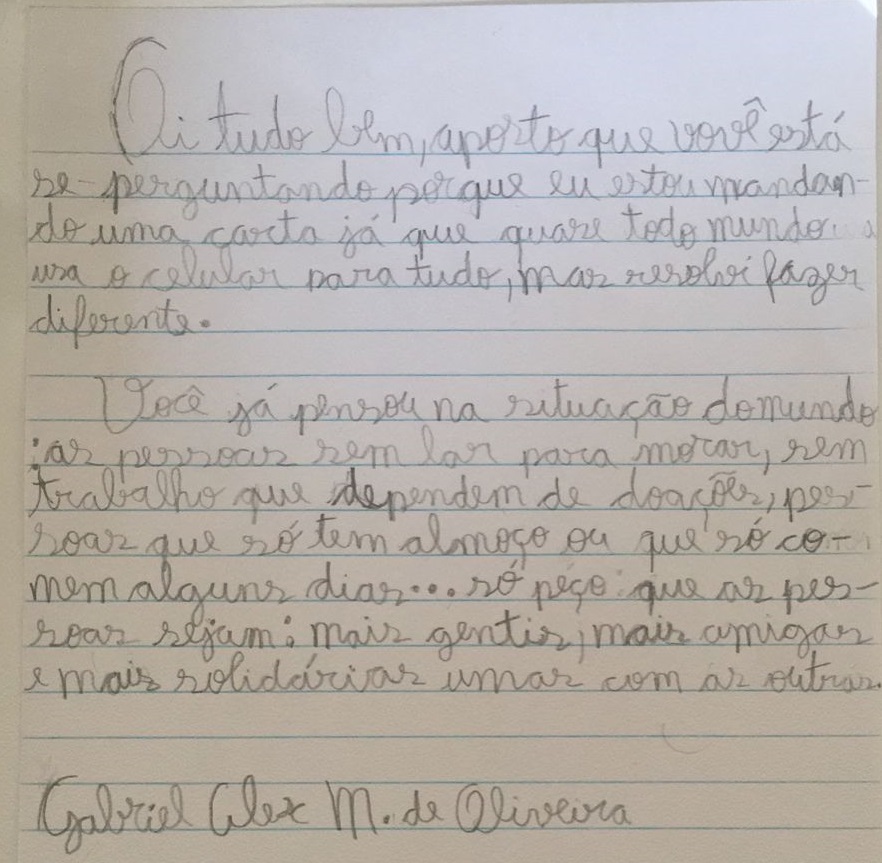 Oi tudo bem, aposto que você está
se-perguntando porque eu estou mandan-
do uma carta já que quase todo mundo
usa o celular para tudo, mas resolvi fazer
diferente.
Você já pensou na situação do mundo
:as pessoas sem lar para morar, sem
trabalho que dependem de doações, pes-
soas que só tem almoço ou que só co-
mem alguns dias... só peço que as pes-
soas sejam: mais gentis, mais amigas
e mais solidárias umas com as outras.
Gabriel Alex M. de Oliveira